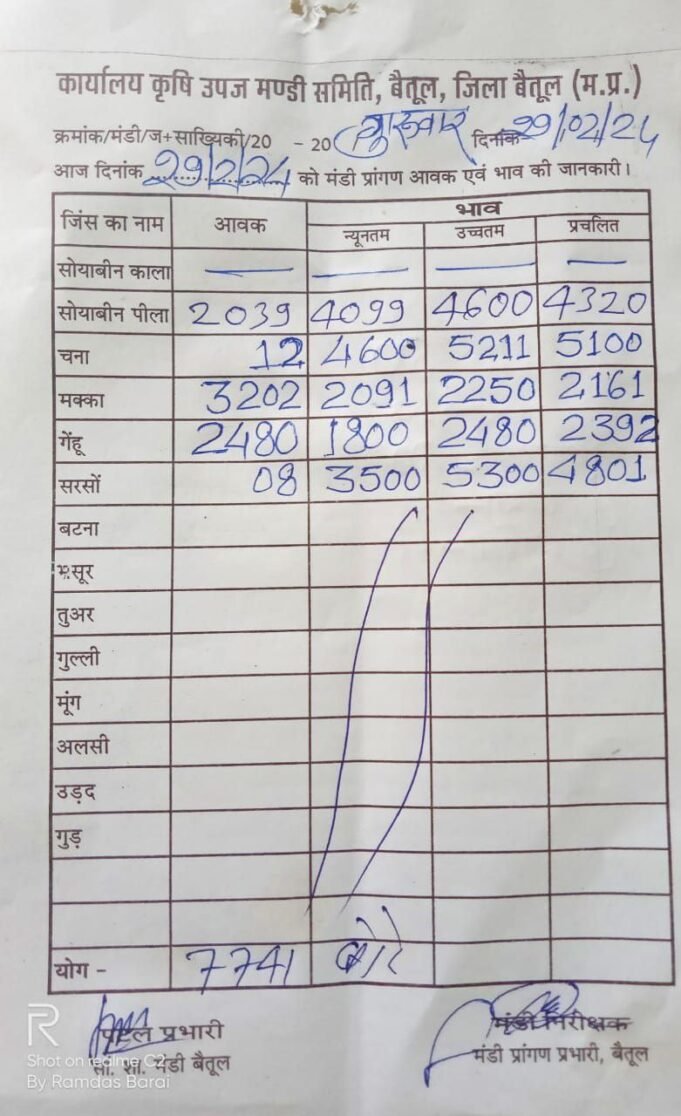 कार्यालय कृषि उपज मण्डी समिति, बैतूल, जिला बैतूल (म.प्र.)
क्रमांक/मंडी/ज+सांख्यिकी/20 - 20 गुरूवार दिनांक 29/02/24
आज दिनांक 29/2/24 को मंडी प्रांगण आवक एवं भाव की जानकारी।
जिंस का नाम आवक भाव
न्यूनतम उच्चतम प्रचलित
सोयाबीन काला — — — —
सोयाबीन पीला 2039 4099 4600 4320
चना 12 4600 5211 5100
मक्का 3202 2091 2250 2161
गेंहू 2480 1800 2480 2392
सरसों 08 3500 5300 4801
बटना
मसूर
तुअर
गुल्ली
मूंग
अलसी
उड़द
गुड़
योग - 7741 बोरे
प्रभारी मंडी निरीक्षक
सां. सा. मंडी बैतूल मंडी प्रांगण प्रभारी, बैतूल
R
Shot on realme C2
By Ramdas Barai